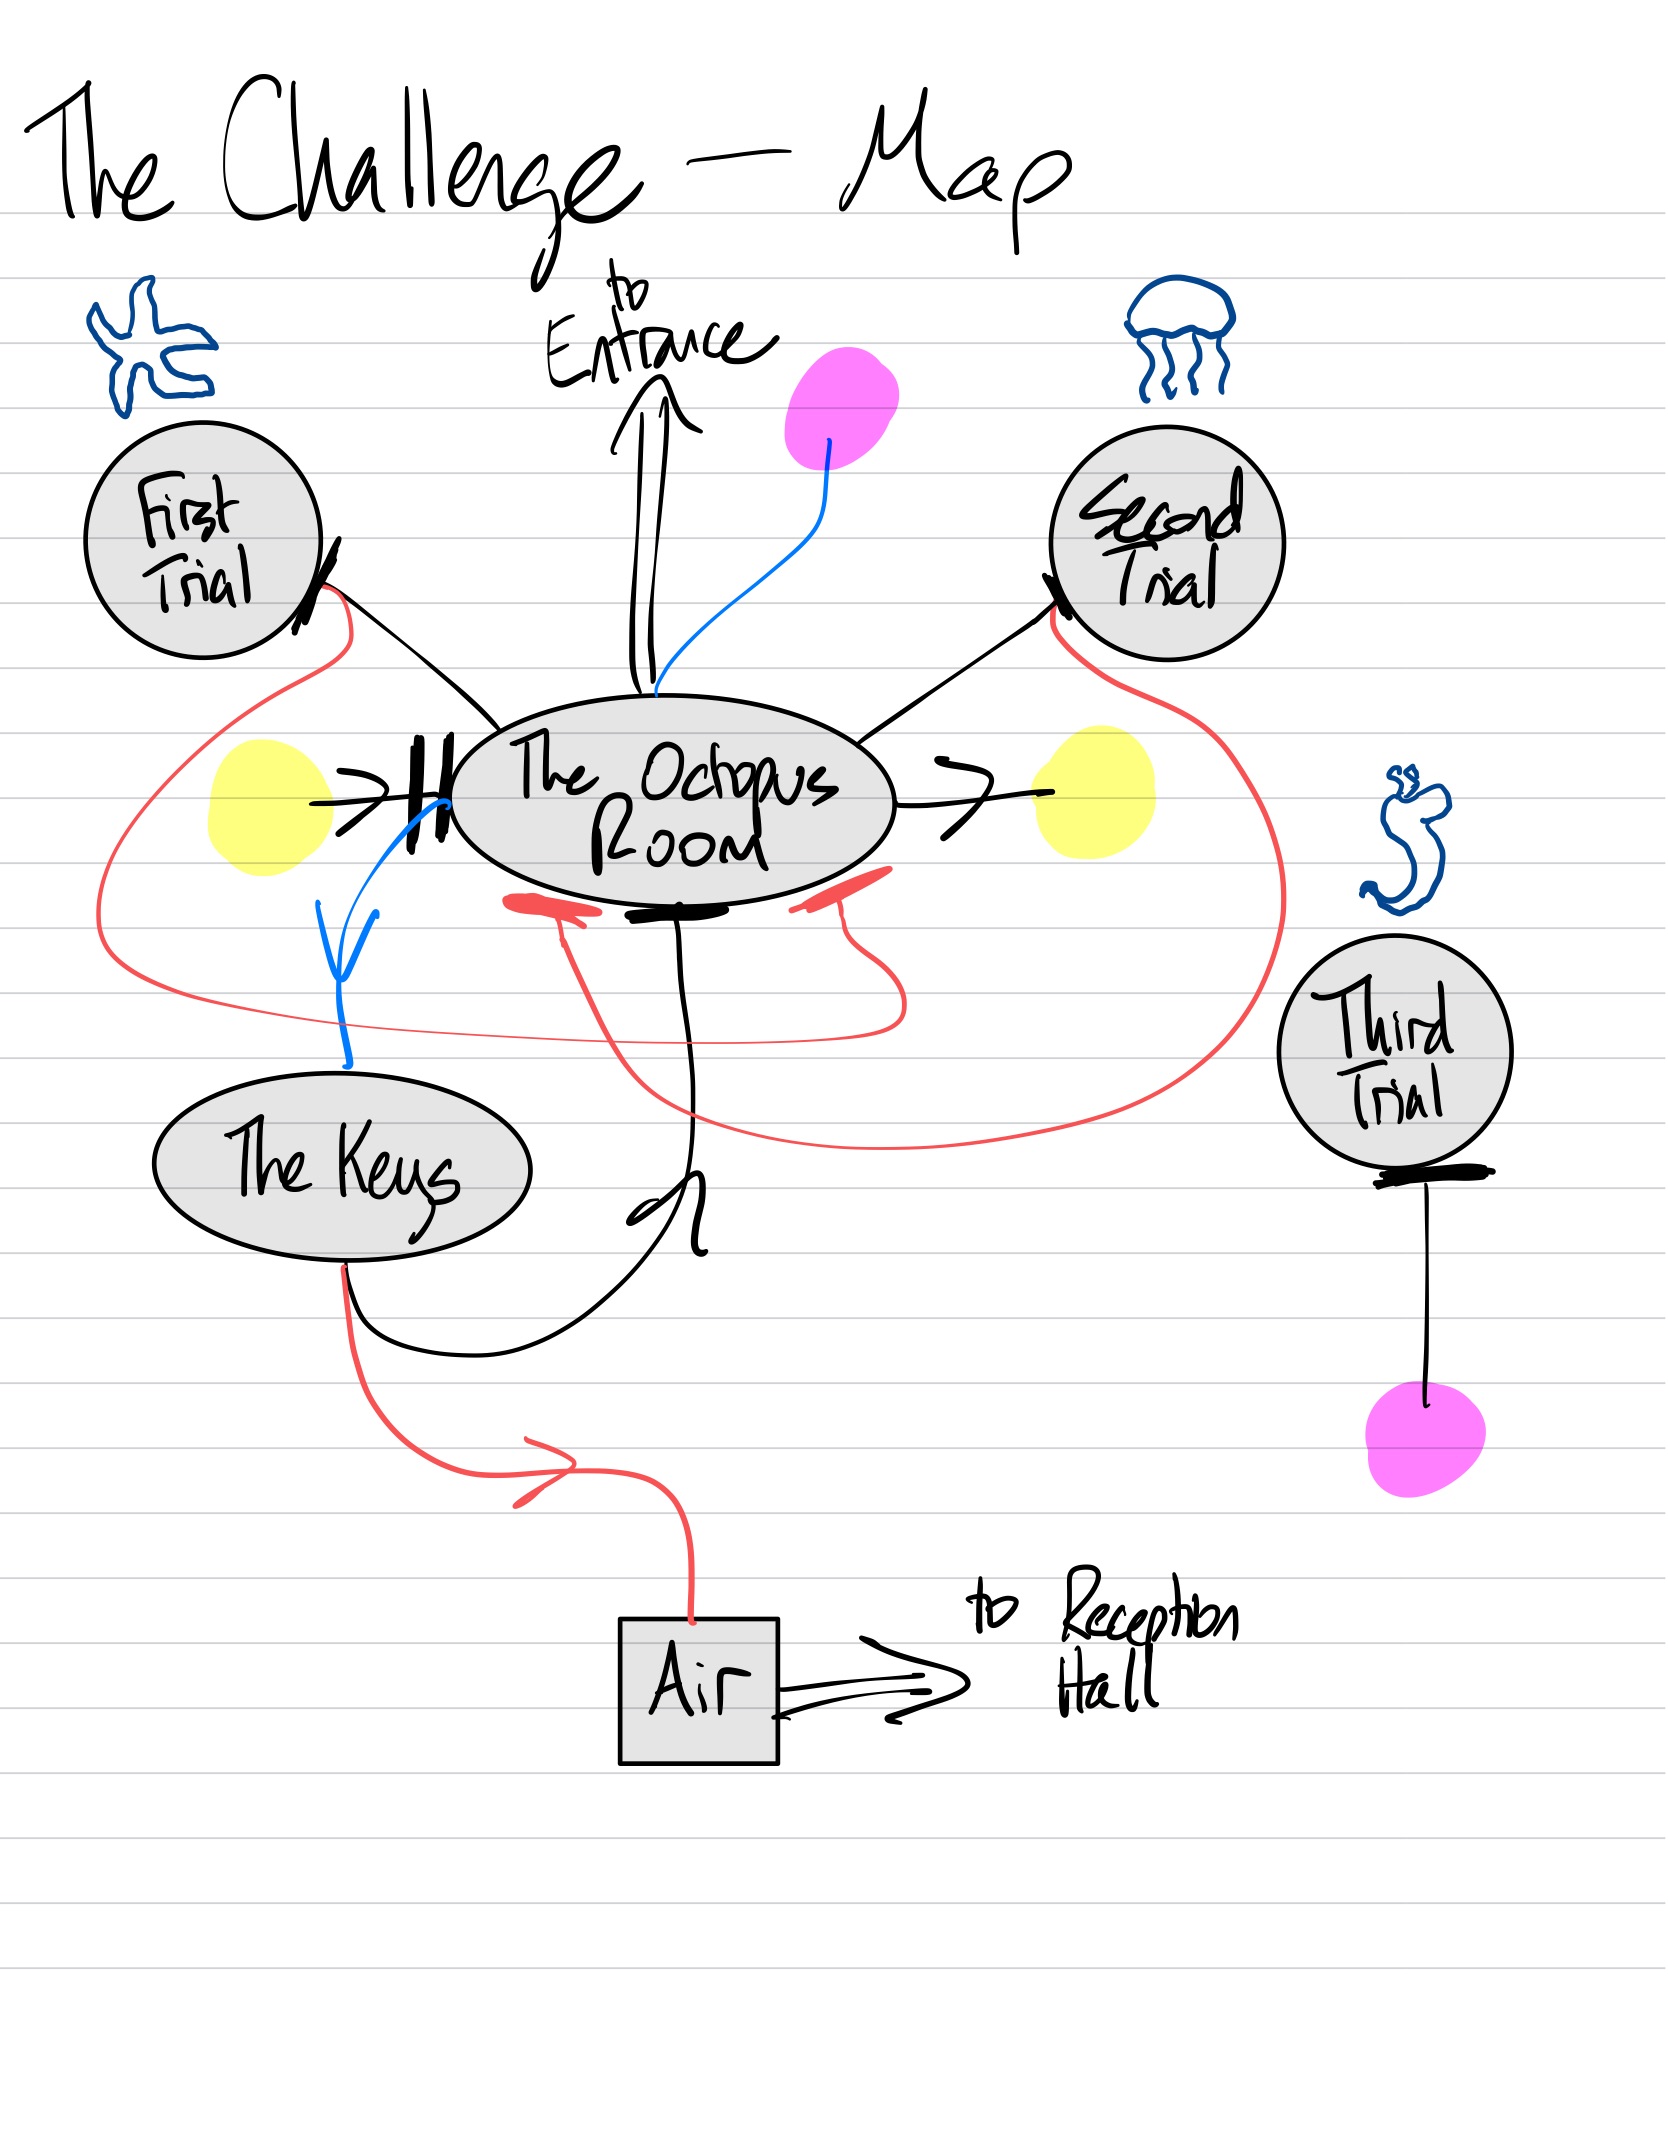 The Challenge — Map
to
Entrance
First
Trial
Second
Trial
The Octopus
Room
Third
Trial
The Keys
to Reception
Hall
Air